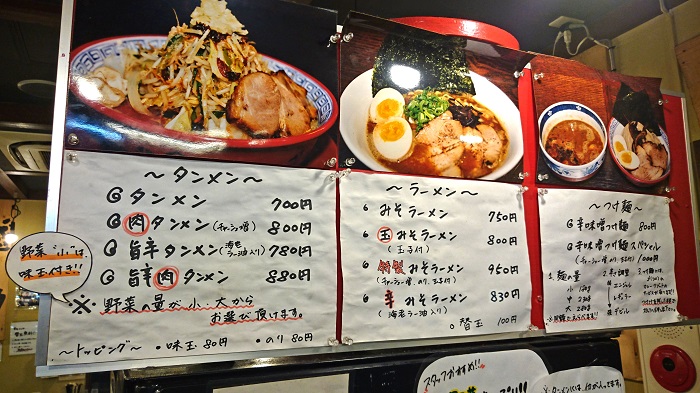 ～タンメン～
タンメン 700円
肉タンメン(チャーシュー増) 800円
旨辛タンメン(海老ラー油入り) 780円
旨辛肉タンメン 880円
※野菜の量が小・大から
お選び頂けます。
～トッピング～ ・味玉 80円 ・のり 80円
野菜“小”は、
味玉付き!!
～ラーメン～
みそラーメン 750円
玉みそラーメン 800円
(玉子付)
特製みそラーメン 950円
(チャーシュー増、のり、玉子付)
辛みそラーメン 830円
(海老ラー油入り)
替玉 100円
～つけ麺～
辛味噌つけ麺 800円
辛味噌つけ麺スペシャル
(チャーシュー増、のり、玉子付) 1000円
1. 麺の量
小
中
大
2. 辛さ調整
エンジェル
レギュラー
デビル
スタッフおすすめ!!